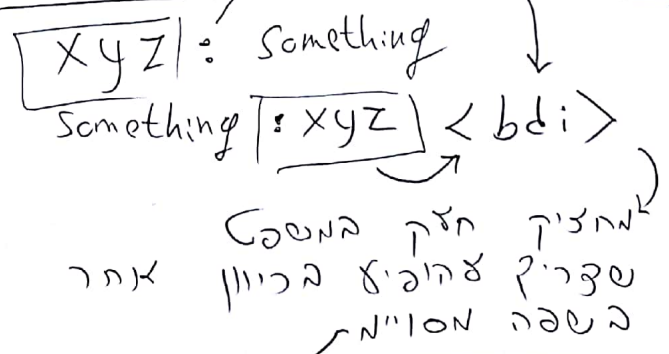 xyz : something
something : xyz <bdi>
מחזיק חלק במשפט
שצריך להופיע בכיוון אחר
בשפה מסויימת